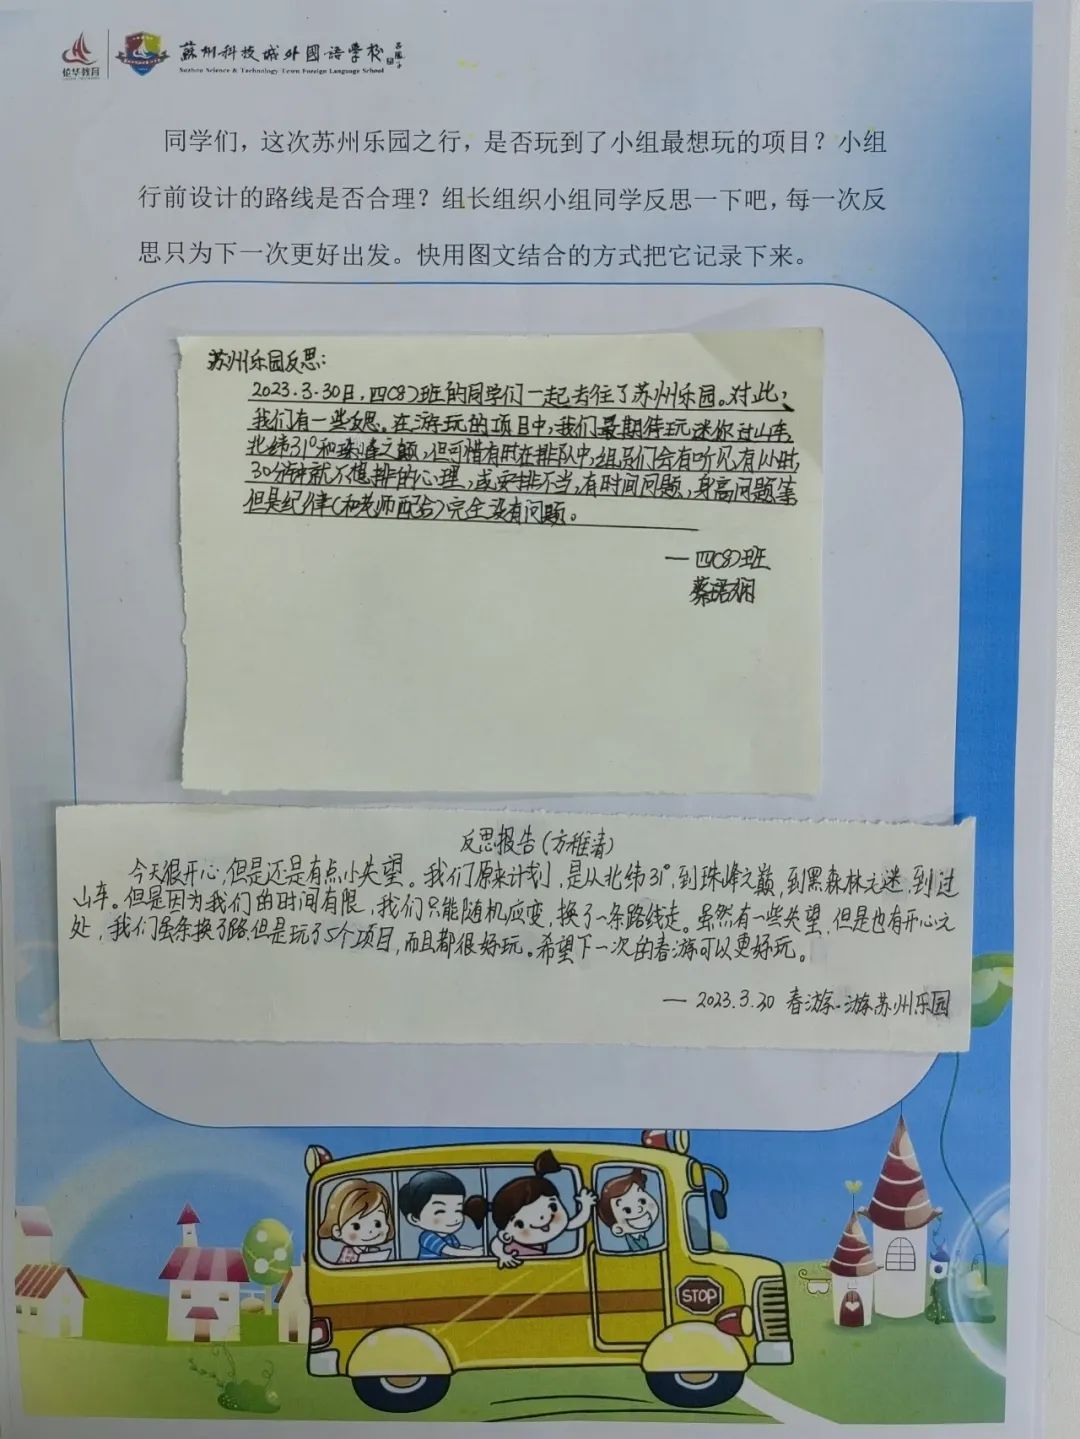 佐华教育
蘇州科技城外國語學校
Suzhou Science & Technology Town Foreign Language School
同学们，这次苏州乐园之行，是否玩到了小组最想玩的项目？小组
行前设计的路线是否合理？组长组织小组同学反思一下吧，每一次反
思只为下一次更好出发。快用图文结合的方式把它记录下来。
苏州乐园反思：
2023.3.30日，四(8)班的同学们一起去往了苏州乐园。对此，
我们有一些反思。在游玩的项目中，我们最期待玩迷你过山车，
北纬31°和珠峰之巅，但可惜有时在排队中，组员们会有听见，有1小时，
30分钟就不想排的心理，或安排不当，有时间问题，身高问题等
但是纪律(和老师配合)完全没有问题。
—四(8)班
反思报告(方稚清)
今天很开心，但是还是有点小失望。我们原来计划，是从北纬31°，到珠峰之巅，到黑森林之迷，到过
山车。但是因为我们的时间有限，我们只能随机应变，换了一条路线走。虽然有一些失望，但是也有开心之
处，我们虽条换了路，但是玩了5个项目，而且都很好玩。希望下一次的春游可以更好玩。
— 2023.3.30 春游·游苏州乐园
STOP